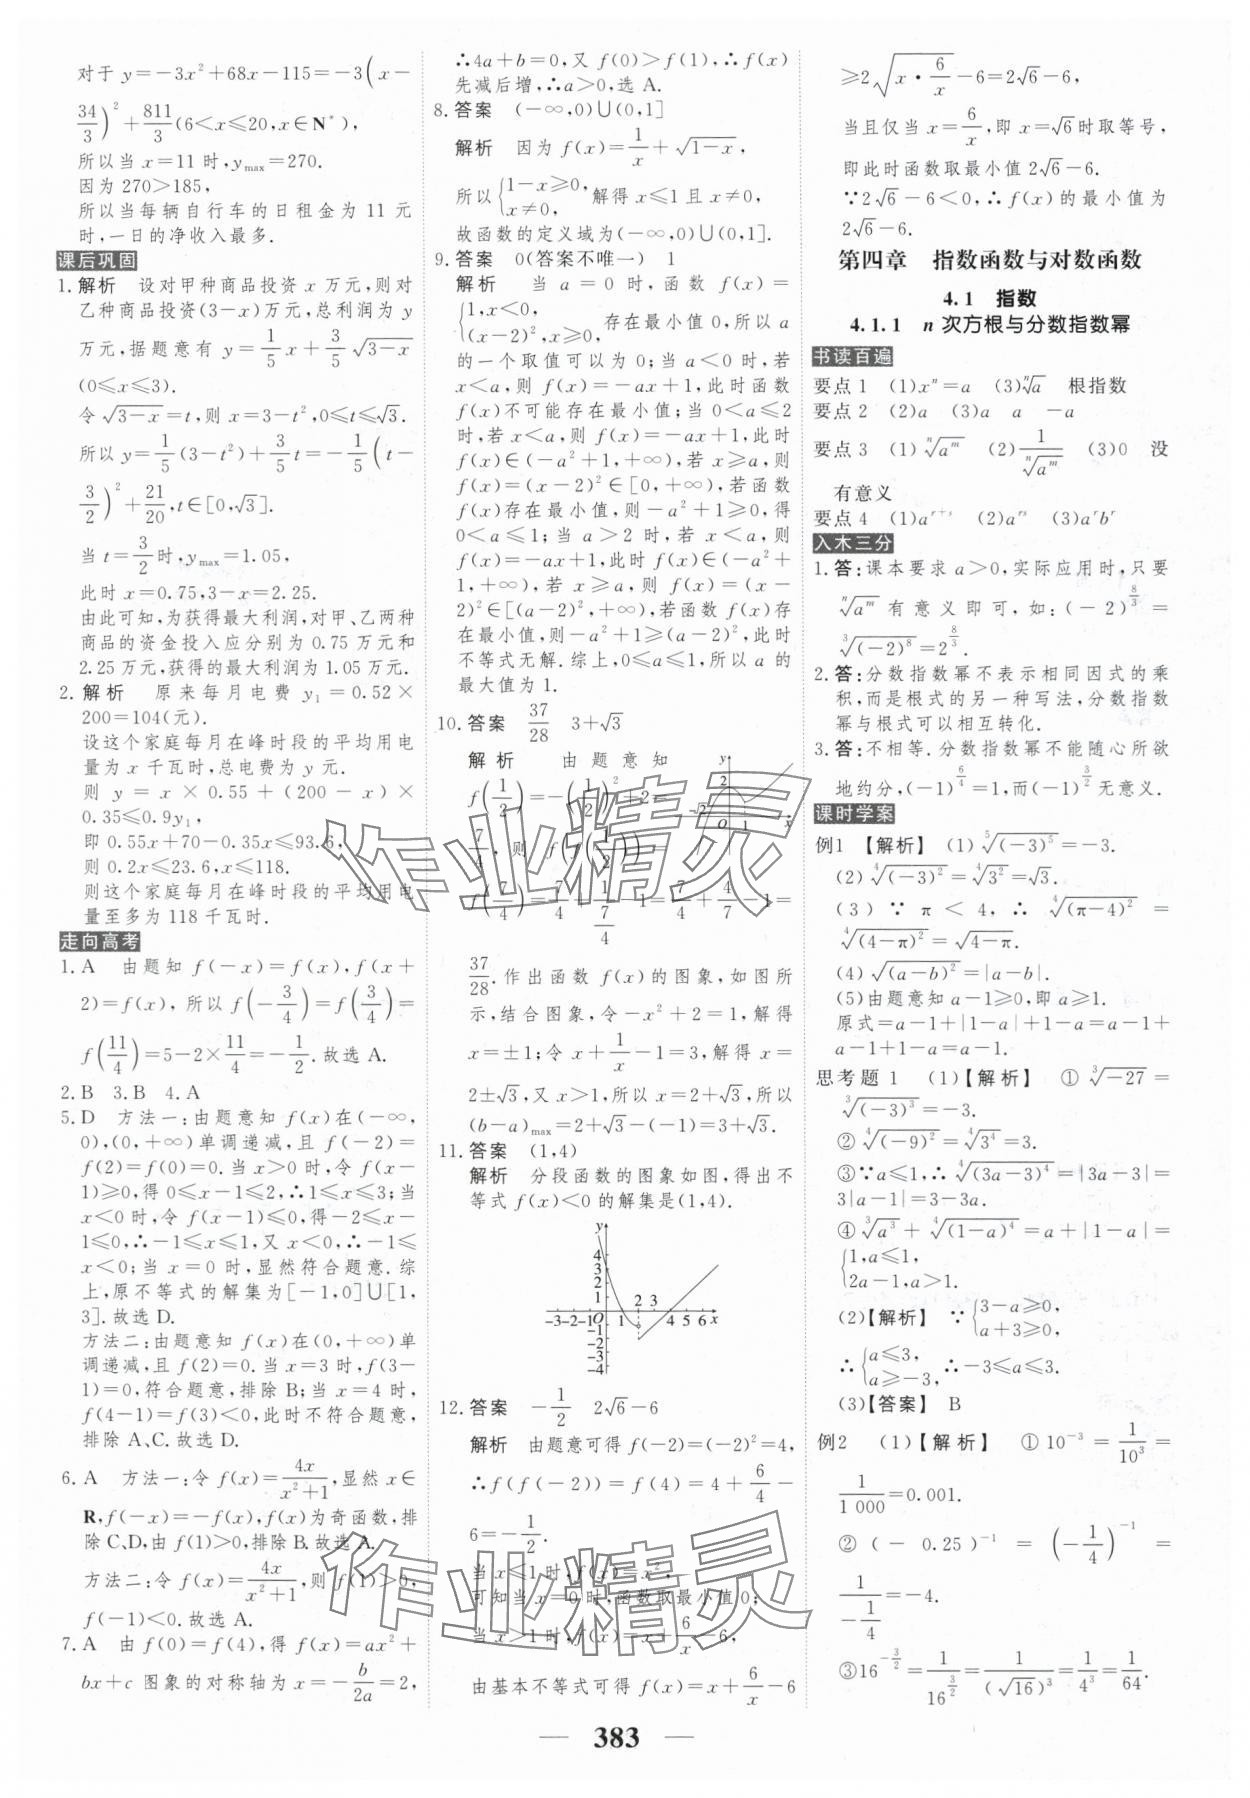 对于 y=-3x²+68x-115=-3(x-
34/3)²+811/3(6<x≤20,x∈N*),
所以当 x=11 时,y_max=270.
因为 270>185,
所以当每辆自行车的日租金为 11 元
时,一日的净收入最多.
课后巩固
1.解析 设对甲种商品投资 x 万元,则对
乙种商品投资(3-x)万元,总利润为 y
万元,据题意有 y=1/5x+3/5√(3-x)
(0≤x≤3).
令 √(3-x)=t,则 x=3-t²,0≤t≤√3.
所以 y=1/5(3-t²)+3/5t=-1/5(t-
3/2)²+21/20,t∈[0,√3].
当 t=3/2时,y_max=1.05,
此时 x=0.75,3-x=2.25.
由此可知,为获得最大利润,对甲、乙两种
商品的资金投入应分别为 0.75 万元和
2.25 万元,获得的最大利润为 1.05 万元.
2.解析 原来每月电费 y₁=0.52×
200=104(元).
设这个家庭每月在峰时段的平均用电
量为 x 千瓦时,总电费为 y 元.
则 y=x×0.55+(200-x)×
0.35≤0.9y₁,
即 0.55x+70-0.35x≤93.6,
则 0.2x≤23.6,x≤118.
则这个家庭每月在峰时段的平均用电
量至多为 118 千瓦时.
走向高考
1.A 由题知 f(-x)=f(x),f(x+
2)=f(x),所以 f(-3/4)=f(3/4)=
f(11/4)=5-2×11/4=-1/2.故选 A.
2.B 3.B 4.A
5.D 方法一:由题意知 f(x)在(-∞,
0),(0,+∞)单调递减,且 f(-2)=
f(2)=f(0)=0.当 x>0 时,令 f(x-
1)≥0,得 0≤x-1≤2,∴1≤x≤3;当
x<0 时,令 f(x-1)≤0,得-2≤x-
1≤0,∴-1≤x≤1,又 x<0,∴-1≤
x<0;当 x=0 时,显然符合题意.综
上,原不等式的解集为[-1,0]∪[1,
3].故选 D.
方法二:由题意知 f(x)在(0,+∞)单
调递减,且 f(2)=0.当 x=3 时,f(3-
1)=0,符合题意,排除 B;当 x=4 时,
f(4-1)=f(3)<0,此时不符合题意,
排除 A、C.故选 D.
6.A 方法一:令 f(x)=4x/(x²+1),显然 x∈
R,f(-x)=-f(x),f(x)为奇函数,排
除 C,D,由 f(1)>0,排除 B.故选 A.
方法二:令 f(x)=4x/(x²+1),则 f(1)>0,
f(-1)<0.故选 A.
7.A 由 f(0)=f(4),得 f(x)=ax²+
bx+c 图象的对称轴为 x=-b/2a=2,
∴4a+b=0,又 f(0)>f(1),∴f(x)
先减后增,∴a>0,选 A.
8.答案 (-∞,0)∪(0,1]
解析 因为 f(x)=1/x+√(1-x),
所以{1-x≥0, x≠0, 解得 x≤1 且 x≠0,
故函数的定义域为(-∞,0)∪(0,1].
9.答案 0(答案不唯一) 1
解析 当 a=0 时,函数 f(x)=
{1,x<0, (x-2)²,x≥0, 存在最小值 0,所以 a
的一个取值可以为 0;当 a<0 时,若
x<a,则 f(x)=-ax+1,此时函数
f(x)不可能存在最小值;当 0<a≤2
时,若 x<a,则 f(x)=-ax+1,此时
f(x)∈(-a²+1,+∞),若 x≥a,则
f(x)=(x-2)²∈[0,+∞),若函数
f(x)存在最小值,则-a²+1≥0,得
0<a≤1;当 a>2 时,若 x<a,则
f(x)=-ax+1,此时 f(x)∈(-a²+
1,+∞),若 x≥a,则 f(x)=(x-
2)²∈[(a-2)²,+∞),若函数 f(x)存
在最小值,则-a²+1≥(a-2)²,此时
不等式无解.综上,0≤a≤1,所以 a 的
最大值为 1.
10.答案 37/28 3+√3
解析 由题意知
f(1/2)=-(1/2)²+2=
7/4,则 f(f(1/2))=
f(7/4)=7/4+1/(7/4)-1=7/4+4/7-1=
37/28.作出函数 f(x)的图象,如图所
示,结合图象,令-x²+2=1,解得
x=±1;令 x+1/x-1=3,解得 x=
2±√3,又 x>1,所以 x=2+√3,所以
(b-a)_max=2+√3-(-1)=3+√3.
11.答案 (1,4)
解析 分段函数的图象如图,得出不
等式 f(x)<0 的解集是(1,4).
12.答案 -1/2 2√6-6
解析 由题意可得 f(-2)=(-2)²=4,
∴f(f(-2))=f(4)=4+6/4-
6=-1/2.
当 x≤1 时,f(x)=x²,
可知当 x=0 时,函数取最小值 0;
当 x>1 时,f(x)=x+6/x-6,
由基本不等式可得 f(x)=x+6/x-6
≥2√(x·6/x)-6=2√6-6,
当且仅当 x=6/x,即 x=√6时取等号,
即此时函数取最小值 2√6-6.
∵2√6-6<0,∴f(x)的最小值为
2√6-6.
第四章 指数函数与对数函数
4.1 指数
4.1.1 n 次方根与分数指数幂
书读百遍
要点 1 (1)xⁿ=a (3)ⁿ√a 根指数
要点 2 (2)a (3)a a -a
要点 3 (1)ⁿ√(a^m) (2)1/ⁿ√(a^m) (3)0 没
有意义
要点 4 (1)a^(r+s) (2)a^(rs) (3)a^r b^r
入木三分
1.答:课本要求 a>0,实际应用时,只要
ⁿ√(a^m) 有意义即可,如:(-2)^(8/3)=
³√((-2)⁸)=2^(8/3).
2.答:分数指数幂不表示相同因式的乘
积,而是根式的另一种写法,分数指数
幂与根式可以相互转化.
3.答:不相等.分数指数幂不能随心所欲
地约分,(-1)^(6/4)=1,而(-1)^(3/2)无意义.
课时学案
例1 【解析】 (1)⁵√((-3)⁵)=-3.
(2)⁴√((-3)²)=⁴√(3²)=√3.
(3)∵π<4,∴⁴√((π-4)²)=
⁴√((4-π)²)=√(4-π).
(4)√((a-b)²)=|a-b|.
(5)由题意知 a-1≥0,即 a≥1.
原式=a-1+|1-a|+1-a=a-1+
a-1+1-a=a-1.
思考题 1 (1)【解析】 ①³√(-27)=
³√((-3)³)=-3.
②⁴√((-9)²)=⁴√(3⁴)=3.
③∵a≤1,∴⁴√((3a-3)⁴)=|3a-3|=
3|a-1|=3-3a.
④³√(a³)+⁴√((1-a)⁴)=a+|1-a|=
{1,a≤1, 2a-1,a>1.
(2)【解析】 ∵{3-a≥0, a+3≥0,
∴{a≤3, a≥-3, ∴-3≤a≤3.
(3)【答案】 B
例2 (1)【解析】 ①10⁻³=1/10³=
1/1 000=0.001.
②(-0.25)⁻¹=(-1/4)⁻¹=
1/(-1/4)=-4.
③16^(-3/2)=1/16^(3/2)=1/(√16)³=1/4³=1/64.
— 383 —
作业精灵
作业精灵